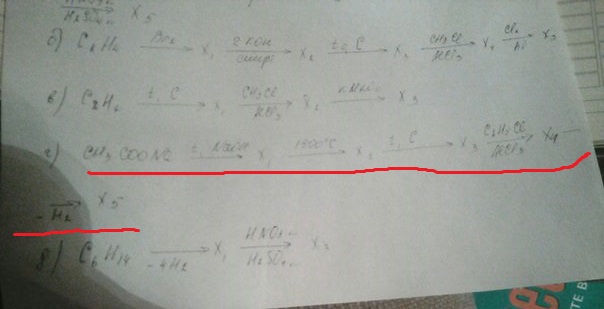 H₂SO₄ к. X₅
б) C₂H₄ Br₂ → X₁ 2 KOH спирт → X₂ t, C → X₃ CH₃Cl AlCl₃ → X₄ Cl₂ → X₅
в) C₂H₂ t, C → X₁ CH₃Cl AlCl₃ → X₂ KMnO₄ → X₃
г) CH₃COONa t, NaOH → X₁ 1500°C → X₂ t, C → X₃ C₂H₅Cl AlCl₃ → X₄
-H₂ → X₅
д) C₆H₁₄ -4H₂ → X₁ HNO₃ к. H₂SO₄ к. → X₂